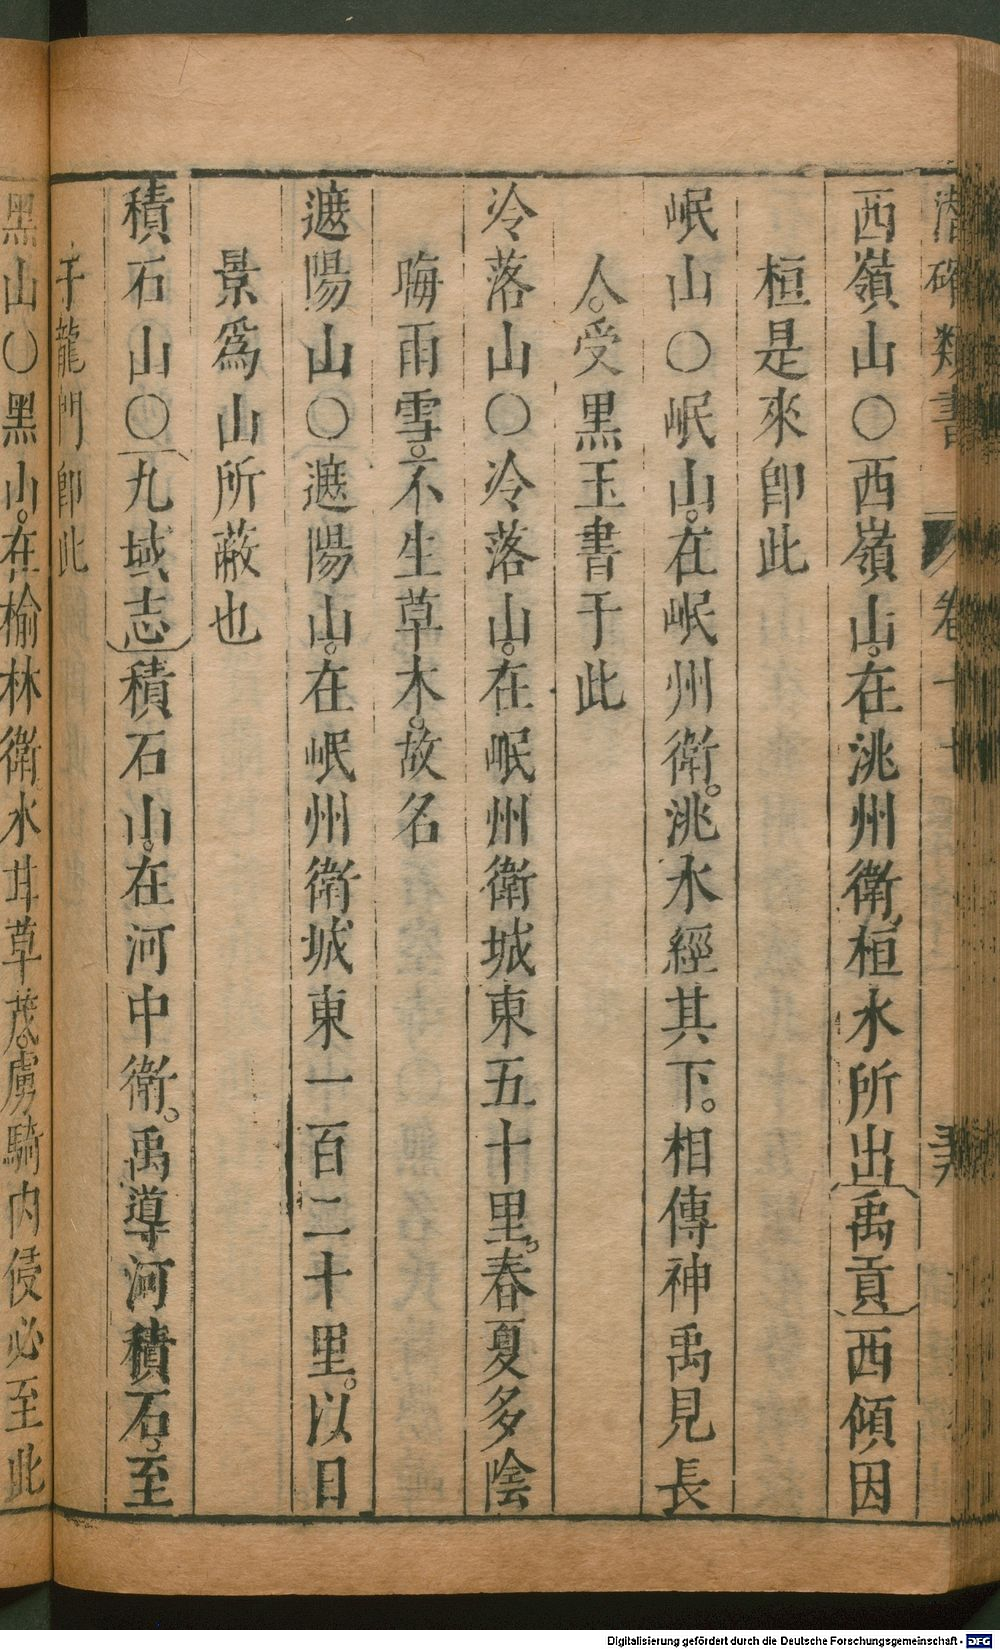 潛確類書 卷二十
西嶺山○西嶺山在洮州衛桓水所出禹貢西傾因
桓是來卽此
岷山○岷山在岷州衛洮水經其下相傳神禹見長
人受黑玉書于此
冷落山○冷落山在岷州衛城東五十里春夏多陰
晦雨雪不生草木故名
遮陽山○遮陽山在岷州衛城東一百二十里以日
景爲山所蔽也
積石山○九域志積石山在河中衛禹導河積石至
于龍門卽此
黑山○黑山在榆林衛水甘草茂虜騎内侵必至此
Digitalisierung gefördert durch die Deutsche Forschungsgemeinschaft - DFG